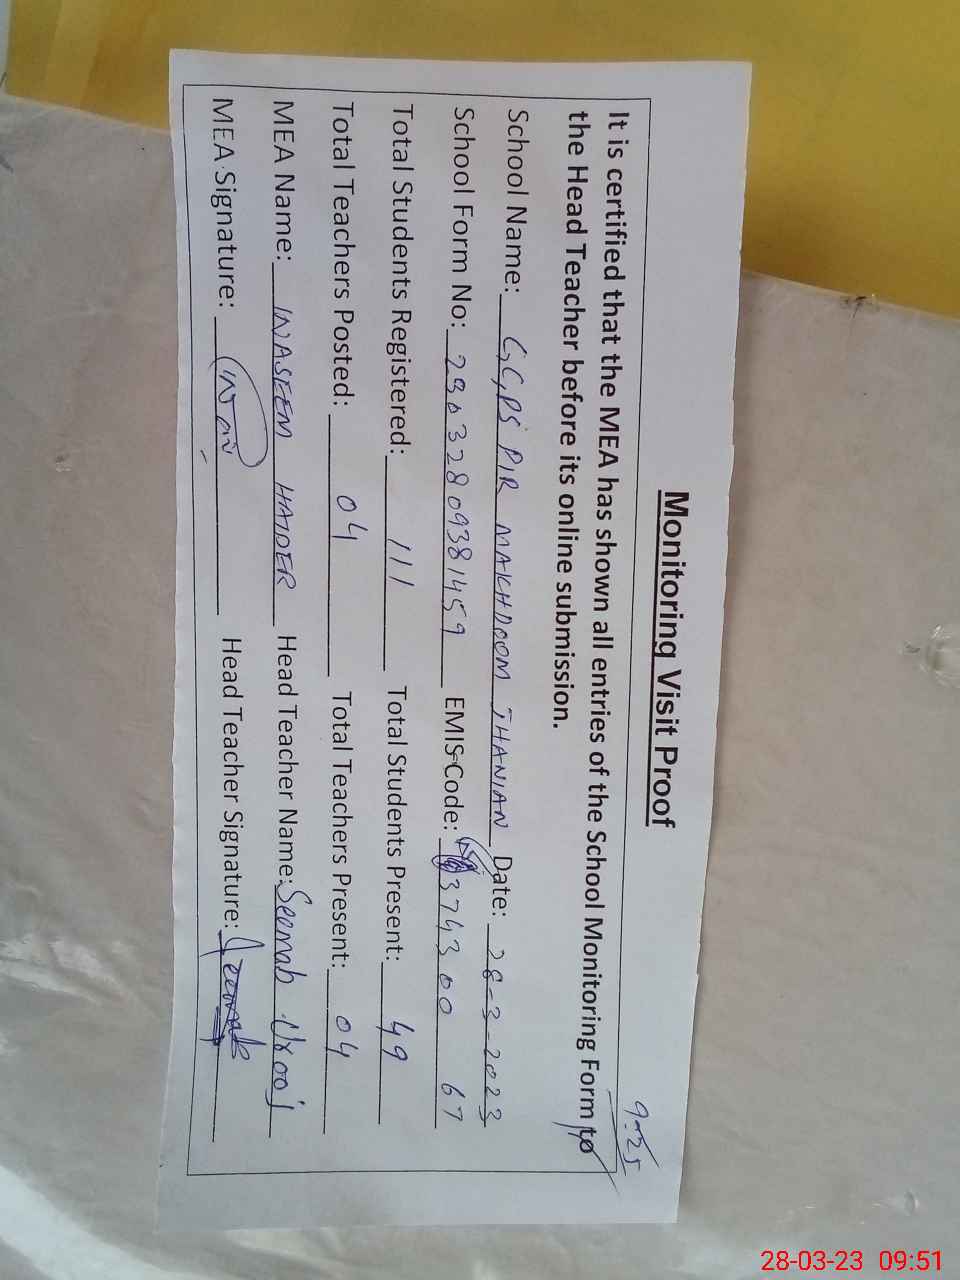 9-25
Monitoring Visit Proof
It is certified that the MEA has shown all entries of the School Monitoring Form to
the Head Teacher before its online submission.
School Name: GGPS PIR MAKHDOOM THANIAN Date: 28-3-2023
School Form No: 23032809381459 EMIS Code: 374300 67
Total Students Registered: 111 Total Students Present: 49
Total Teachers Posted: 04 Total Teachers Present: 04
MEA Name: WASEEM HAIDER Head Teacher Name: Seemab Urooj
MEA Signature: Head Teacher Signature: Seemab
28-03-23 09:51